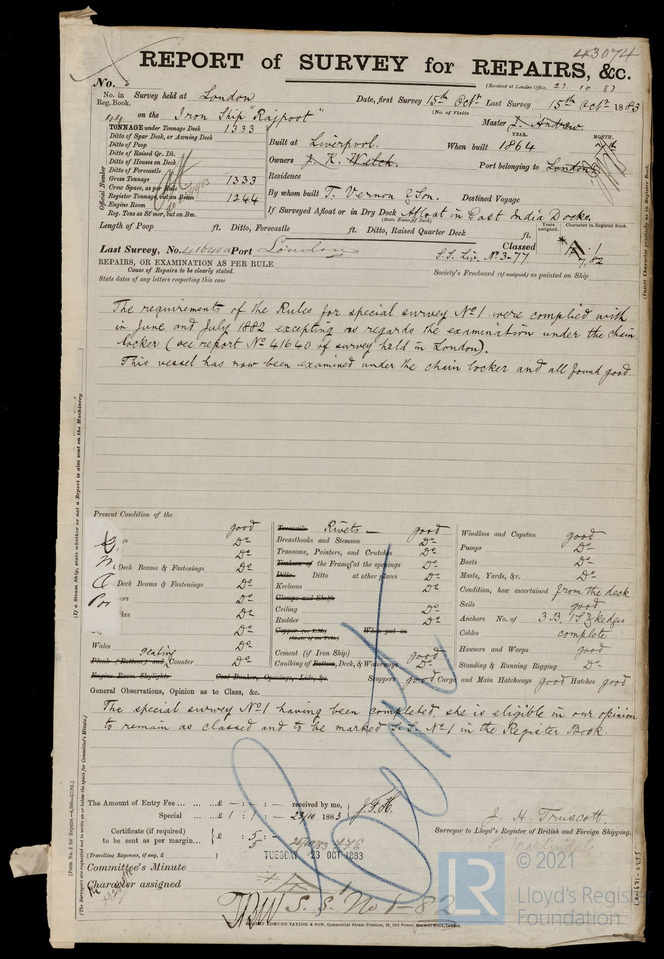 43074
REPORT of SURVEY for REPAIRS, &c.
(Received at London Office, 23 10 83
No.
No. in Reg. Book. Survey held at London Date, first Survey 15th Octr Last Survey 15th Octr 1883
(No. of Visits
44 on the Iron Ship "Rajpoot" Master J. Andrew
TONNAGE under Tonnage Deck 1333
Ditto of Spar Deck, or Awning Deck
Ditto of Poop
Ditto of Raised Qr. Dk.
Ditto of Houses on Deck
Ditto of Forecastle
Gross Tonnage 1333
Crew Space, as per Rule
Register Tonnage, cut on Beam 1244
Engine Room
Reg. Tons as St'mer, cut on Bm.
Official Number
Built at Liverpool. When built 1864
YEAR. MONTH.
Owners J. K. Welch. Port belonging to London
Residence
By whom built T. Vernon & Son. Destined Voyage
If Surveyed Afloat or in Dry Dock Afloat in East India Docks.
(State Name of Dock)
Length of Poop ft. Ditto, Forecastle ft. Ditto, Raised Quarter Deck ft.
Years assigned. Character in Register Book.
Last Survey, No. 41640 Port London Classed A 1
7,82
S.S. Liv. No 3-77
REPAIRS, OR EXAMINATION AS PER RULE
Causes of Repairs to be clearly stated.
State dates of any letters respecting this case
Society's Freeboard (if assigned) as painted on Ship
The requirements of the Rules for special survey No 1 were complied with
in June and July 1882 excepting as regards the examination under the chain
locker (see report No 41640 of survey held in London).
This vessel has now been examined under the chain locker and all found good.
Present Condition of the
good
Do
Deck Beams & Fastenings Do
Deck Beams & Fastenings Do
Do
Do
Do
Wales Do
Plank (Bottom) and Counter Do
Engine Room Skylights Coal Bunker, Openings, Lids, &c.
Treenails Rivets good
Breasthooks and Stemson Do
Transoms, Pointers, and Crutches Do
Timbers of the Frames at the openings Do
Ditto. Ditto at other places Do
Keelsons Do
Clamps and Shelfs
Ceiling Do
Rudder Do
Copper When put on
Cement (if Iron Ship) good
Caulking of Bottom, Deck, & Waterways Do
Scuppers good Cargo and Main Hatchways good Hatches good
Windlass and Capstan good
Pumps Do
Boats Do
Masts, Yards, &c. Do
Condition, how ascertained from the deck
Sails good
Anchors No. of 3 B. 1 S. 2 kedges
Cables complete
Hawsers and Warps good
Standing & Running Rigging Do
General Observations, Opinion as to Class, &c.
The special survey No 1 having been completed she is eligible in our opinion
to remain as classed and to be marked S.S. No 1 in the Register Book.
The Amount of Entry Fee ... ... ...£ - : - : - received by me,
Special ... ...£ 1 : 1 : - 23/10 1883
Certificate (if required) to be sent as per margin... £ 5
(Travelling Expenses, if any, £ )
J. H. Truscott.
Surveyor to Lloyd's Register of British and Foreign Shipping.
TUESDAY 23 OCT 1883
Committee's Minute
Character assigned
A 1
S.S. No 1-82
© 2021
LR
Lloyd's Register
Foundation